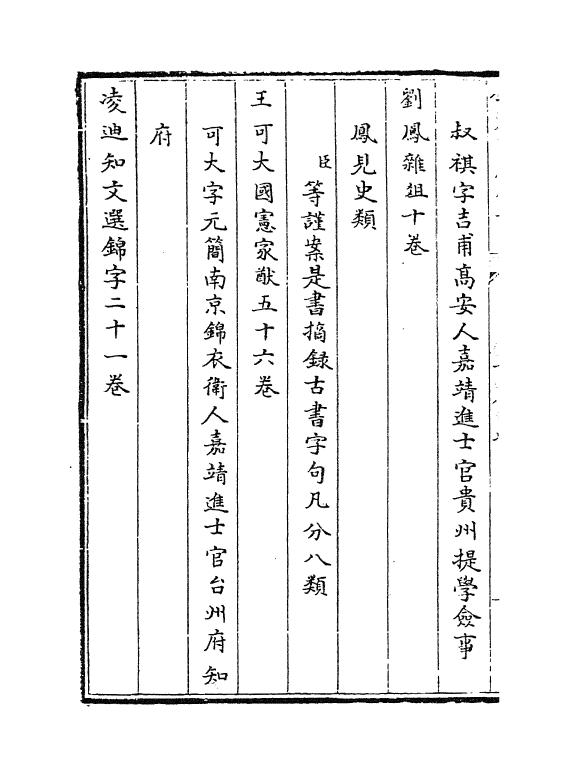 叔祺字吉甫髙安人嘉靖進士官貴州提學僉事
劉鳳雜俎十卷
鳳見史類
臣等謹案是書掐録古書字句凡分八類
王可大國憲家猷五十六卷
可大字元簡南京錦衣衛人嘉靖進士官台州府知
府
凌迪知文選錦字二十一卷